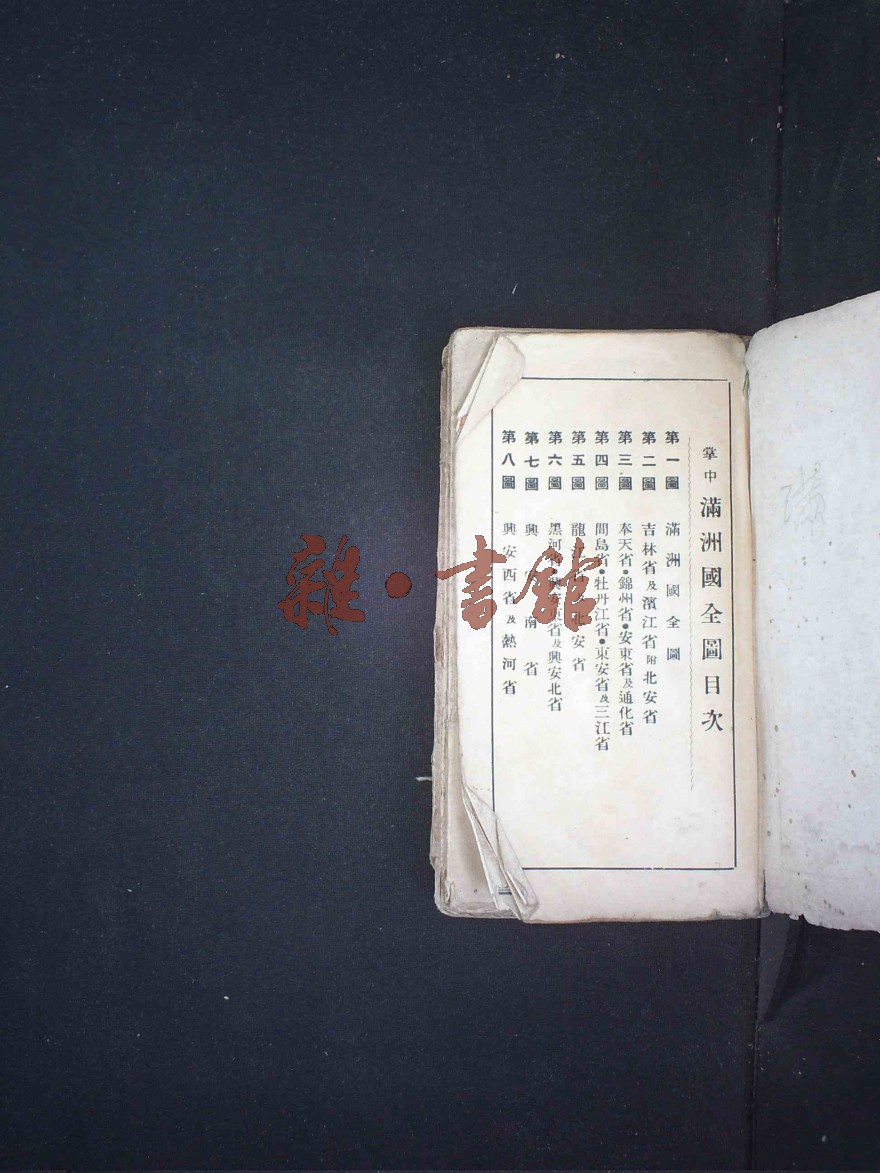 掌中 滿洲國全圖目次
第一圖 滿洲國全圖
第二圖 吉林省及濱江省附北安省
第三圖 奉天省●錦州省●安東省及通化省
第四圖 間島省●牡丹江省●東安省及三江省
第五圖 龍江省及北安省
第六圖 黑河省興安東省及興安北省
第七圖 興安南省
第八圖 興安西省及熱河省
雜·書館